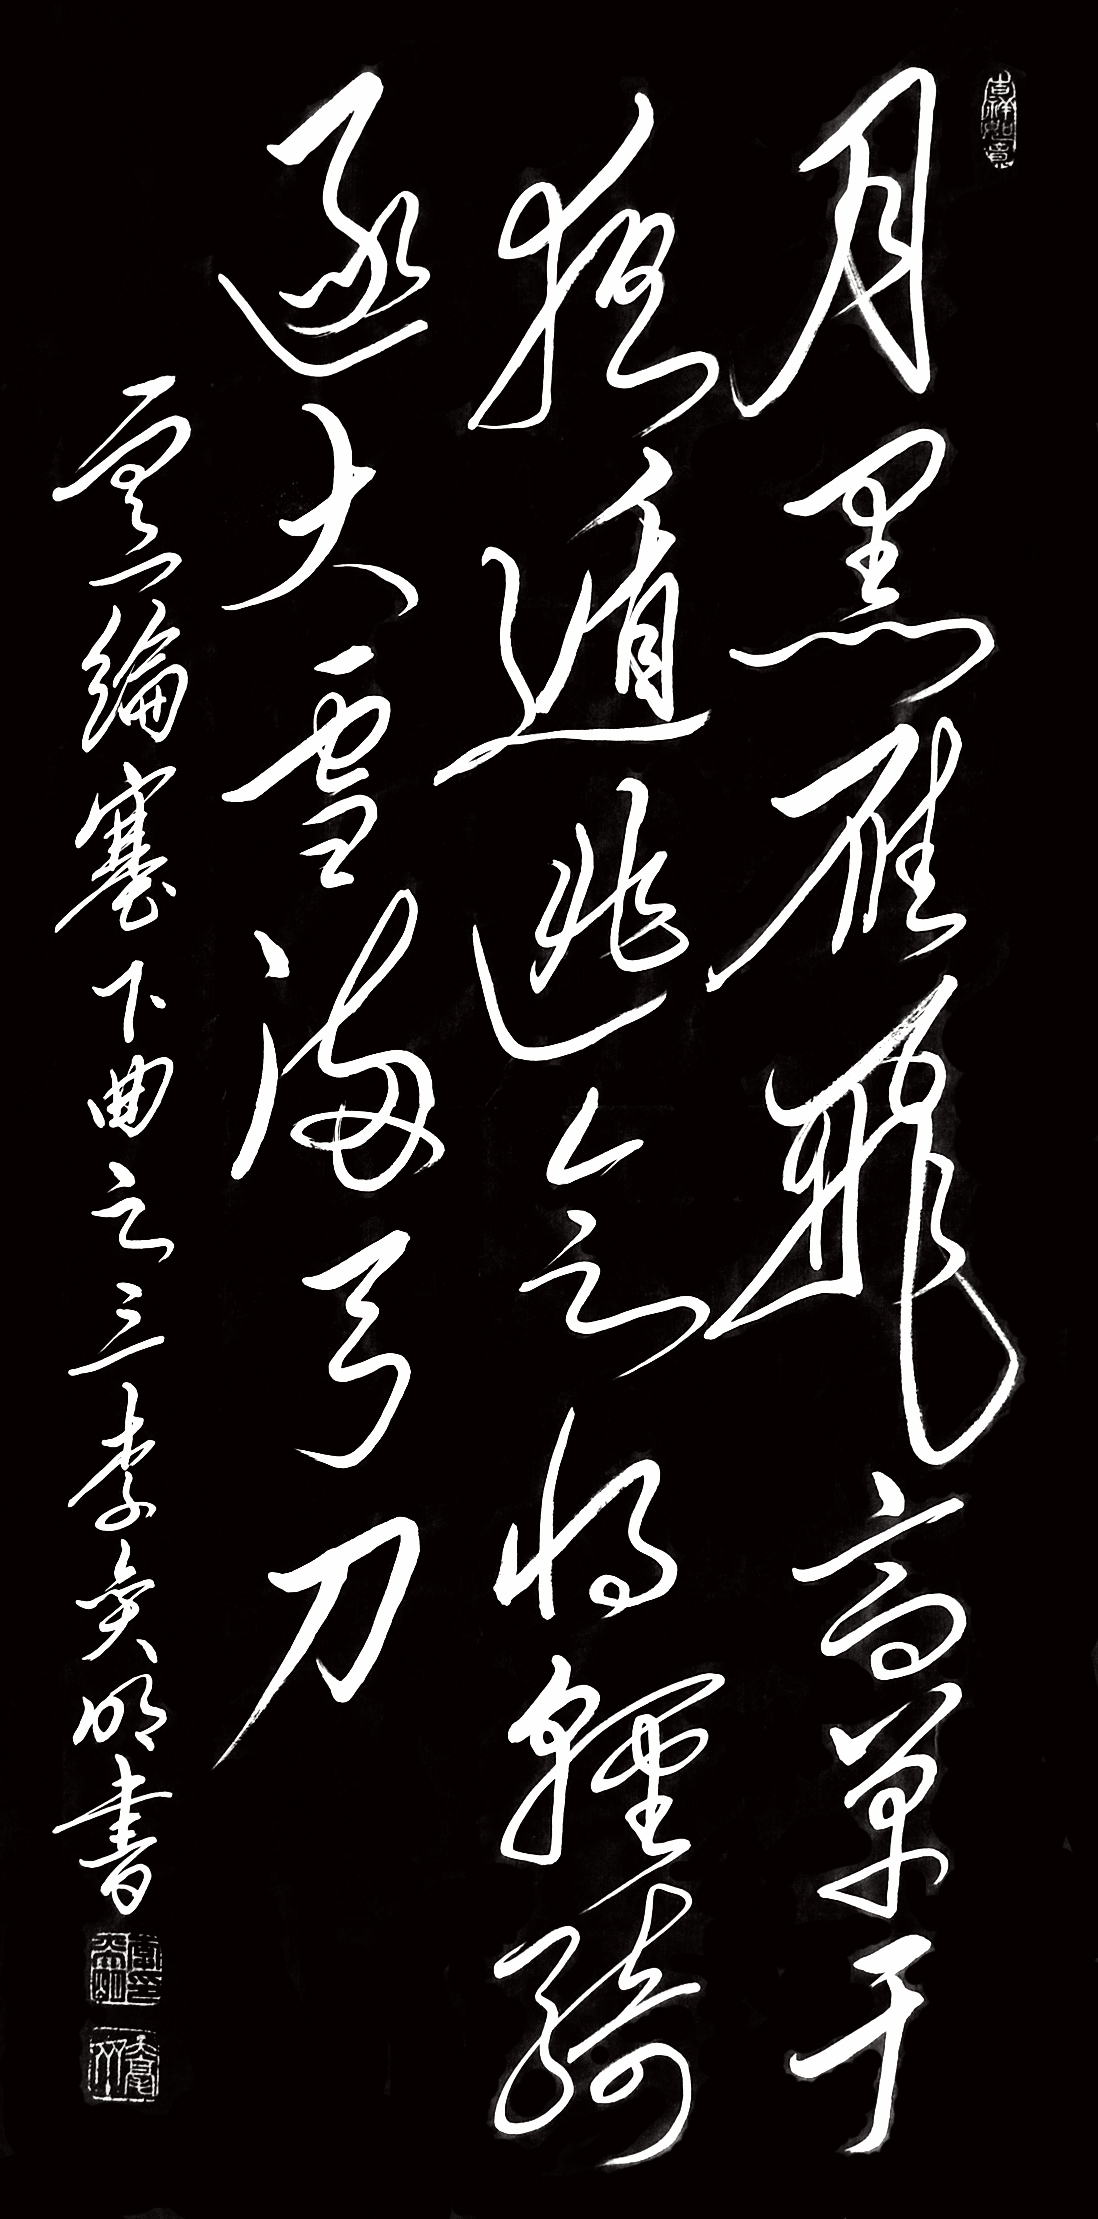 吉祥如意
月黑雁飛高單于
夜遁逃欲將輕騎
逐大雪滿弓刀
盧綸塞下曲之三李奐明書